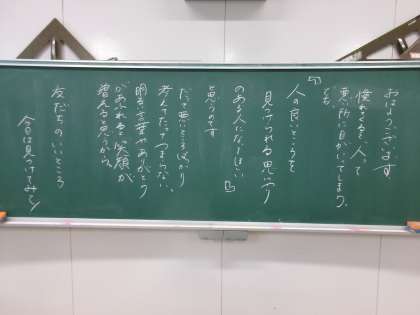 おはようございます。
慣れてくると、人って
悪い所に目がいってしまう。
でも、
人の良いところを
見つけられる思いやり
のある人になってほしい
と思うのです
だって悪いところばかり
考えてたってつまらない。
明るい言葉やありがとう
があふれると笑顔が
増えると思うから。
友だちのいいところ
今日は見つけてみて!